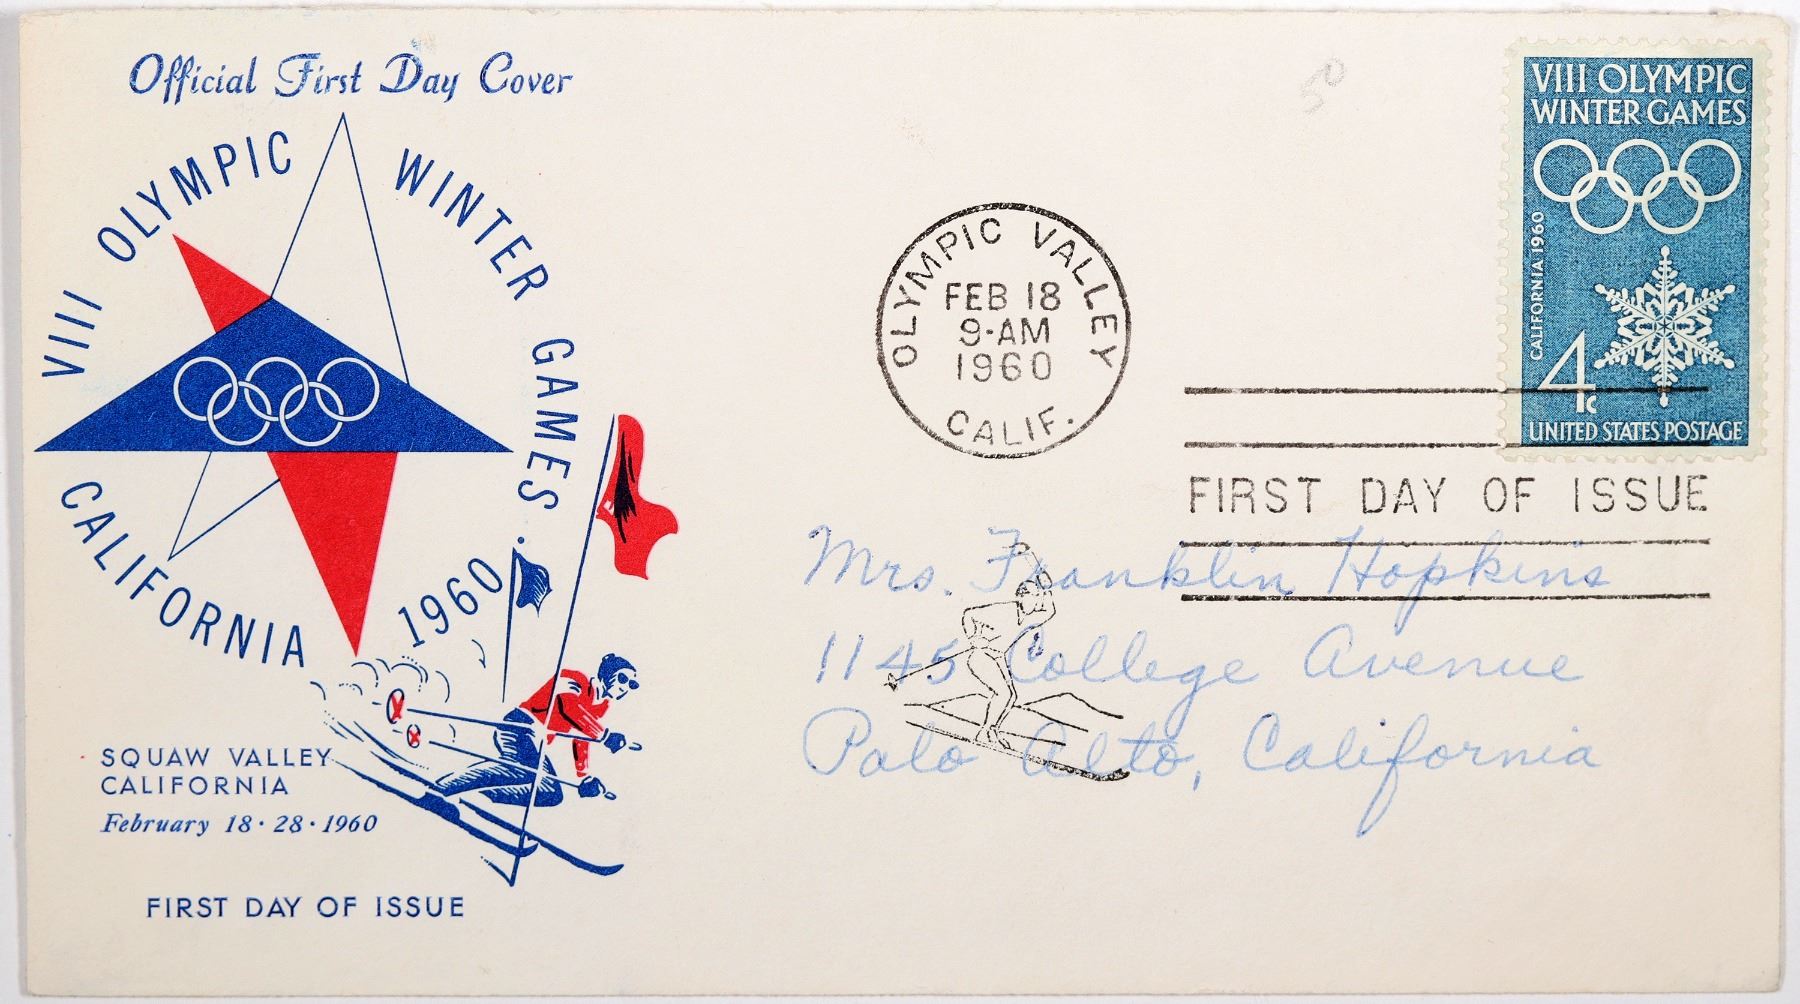 Official First Day Cover
VIII OLYMPIC WINTER GAMES
CALIFORNIA 1960
SQUAW VALLEY
CALIFORNIA
February 18 · 28 · 1960
FIRST DAY OF ISSUE
50
OLYMPIC VALLEY
FEB 18
9-AM
1960
CALIF.
VIII OLYMPIC
WINTER GAMES
CALIFORNIA 1960
4c
UNITED STATES POSTAGE
FIRST DAY OF ISSUE
Mrs. Franklin Hopkins
1145 College Avenue
Palo Alto, California